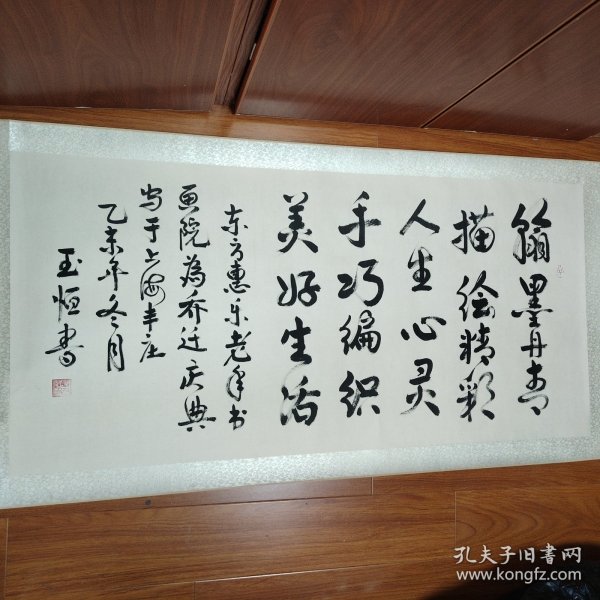 翰墨丹青
描绘精彩
人生心灵
手巧编织
美好生活
东方惠乐老年书
画院为乔迁庆典
写于上海丰庄
乙未年冬月
玉恒书
孔夫子旧书网
www.kongfz.com